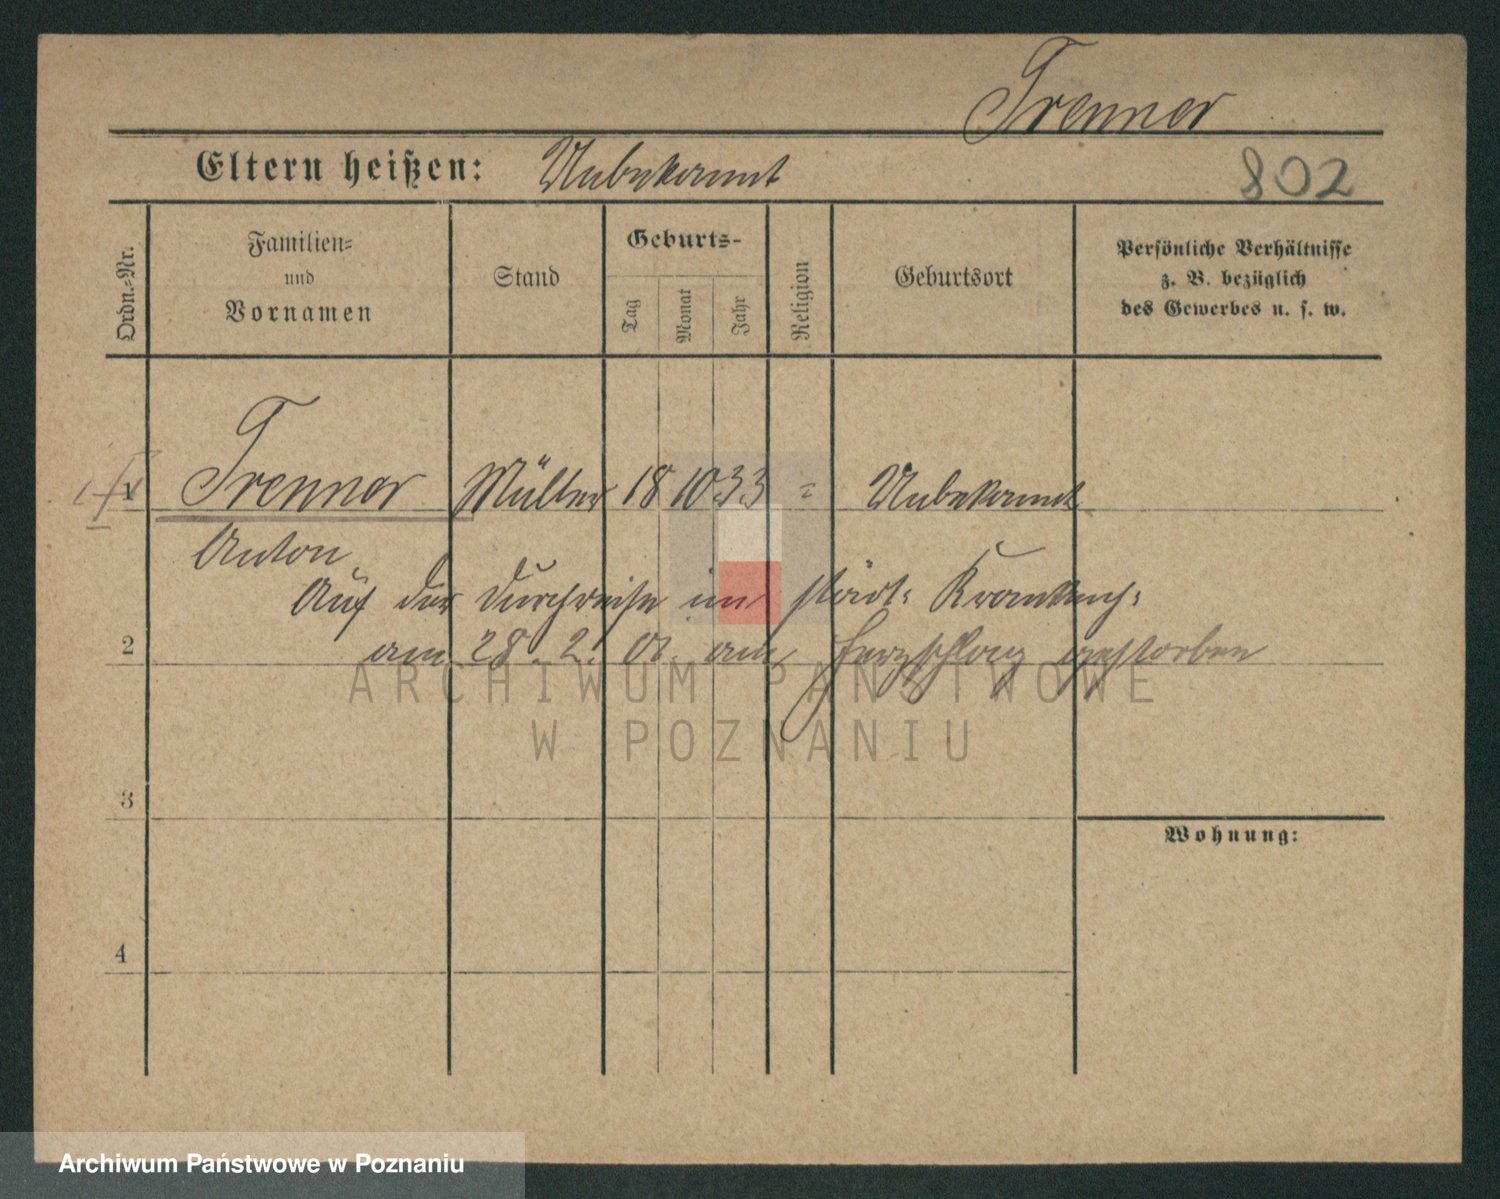 Trenner
Eltern heißen: Unbekannt
802
Ordn.-Nr.
Familien-
und
Vornamen
Stand
Geburts-
Tag
Monat
Jahr
Religion
Geburtsort
Persönliche Verhältnisse
z. B. bezüglich
des Gewerbes u. s. w.
1 Trenner Müller 18 10 33 = Unbekannt
Anton
Auf der Durchreise im städt: Krankenh:
2 am 28. 2. 01 am Herzschlag gestorben
ARCHIWUM PAŃSTWOWE
W POZNANIU
3
Wohnung:
4
Archiwum Państwowe w Poznaniu